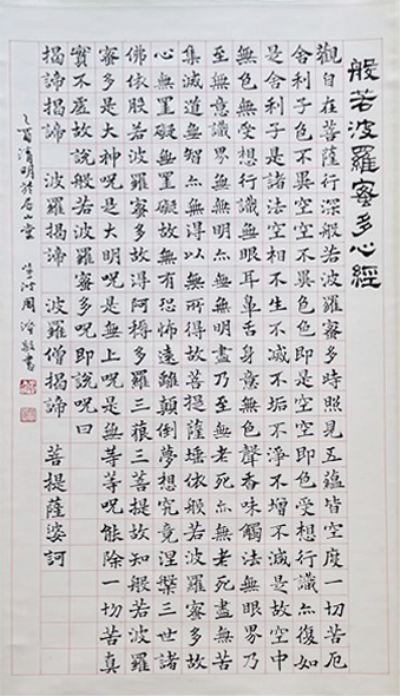 般若波羅蜜多心經
觀自在菩薩行深般若波羅蜜多時照見五蘊皆空度一切苦厄
舍利子色不異空空不異色色即是空空即是色受想行識亦復如
是舍利子是諸法空相不生不滅不垢不淨不增不減是故空中
無色無受想行識無眼耳鼻舌身意無色聲香味觸法無眼界乃
至無意識界無無明亦無無明盡乃至無老死亦無老死盡無苦
集滅道無智亦無得以無所得故菩提薩埵依般若波羅蜜多故
心無罣礙無罣礙故無有恐怖遠離顛倒夢想究竟涅槃三世諸
佛依般若波羅蜜多故得阿耨多羅三藐三菩提故知般若波羅
蜜多是大神呪是大明呪是無上呪是無等等呪能除一切苦真
實不虛故說般若波羅蜜多呪即說呪曰
揭諦揭諦 波羅揭諦 波羅僧揭諦 菩提薩婆訶
乙酉清明於居山堂 周 敬書